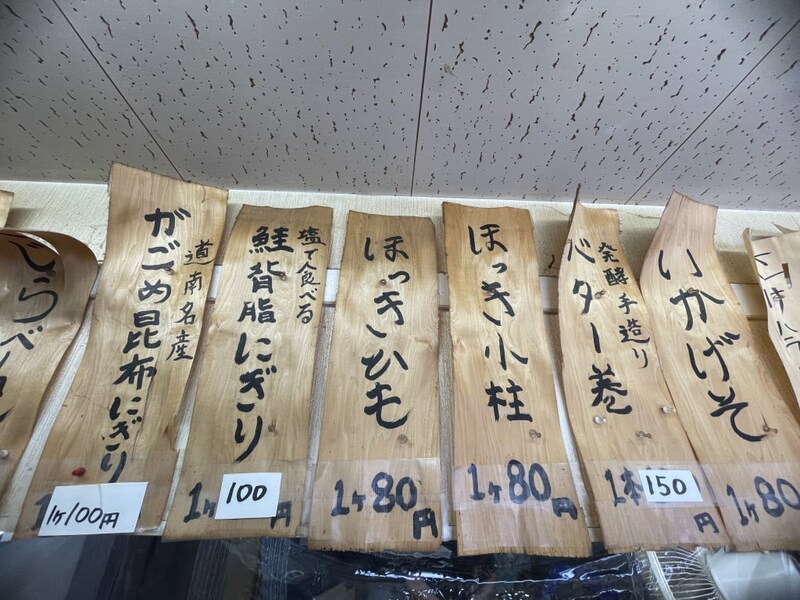 道南名産
がごめ昆布にぎり
1ヶ100円
塩で食べる
鮭背脂にぎり
1ヶ100円
ほっきひも
1ヶ80円
ほっき小柱
1ヶ80円
発酵手造り
バター巻
1本150円
いかげそ
1ヶ80